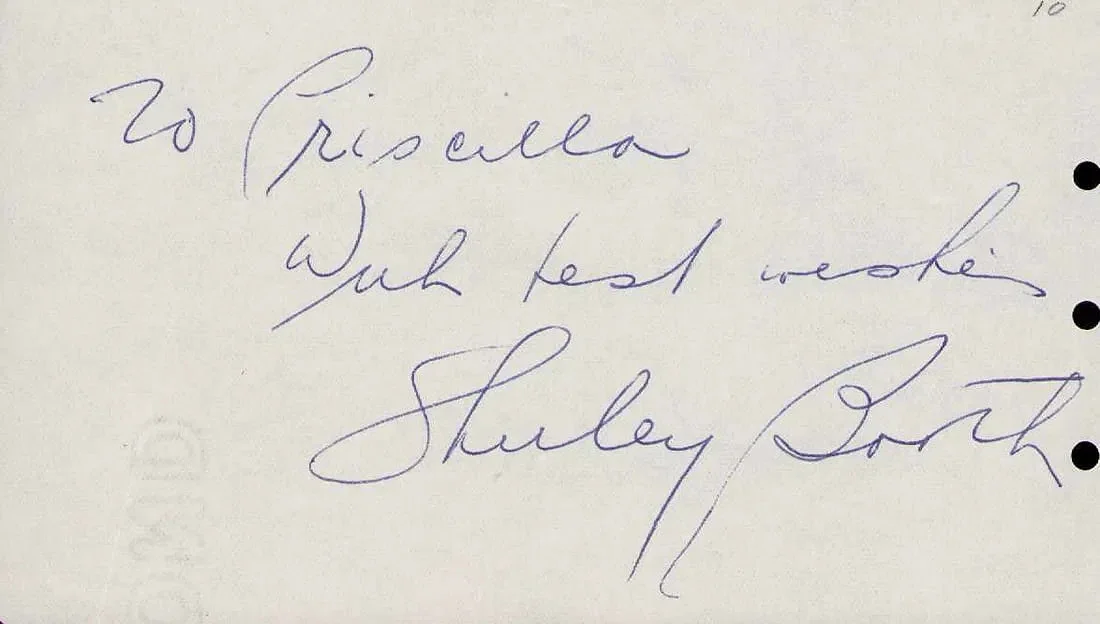 10
To Priscilla
With best wishes
Shirley Booth